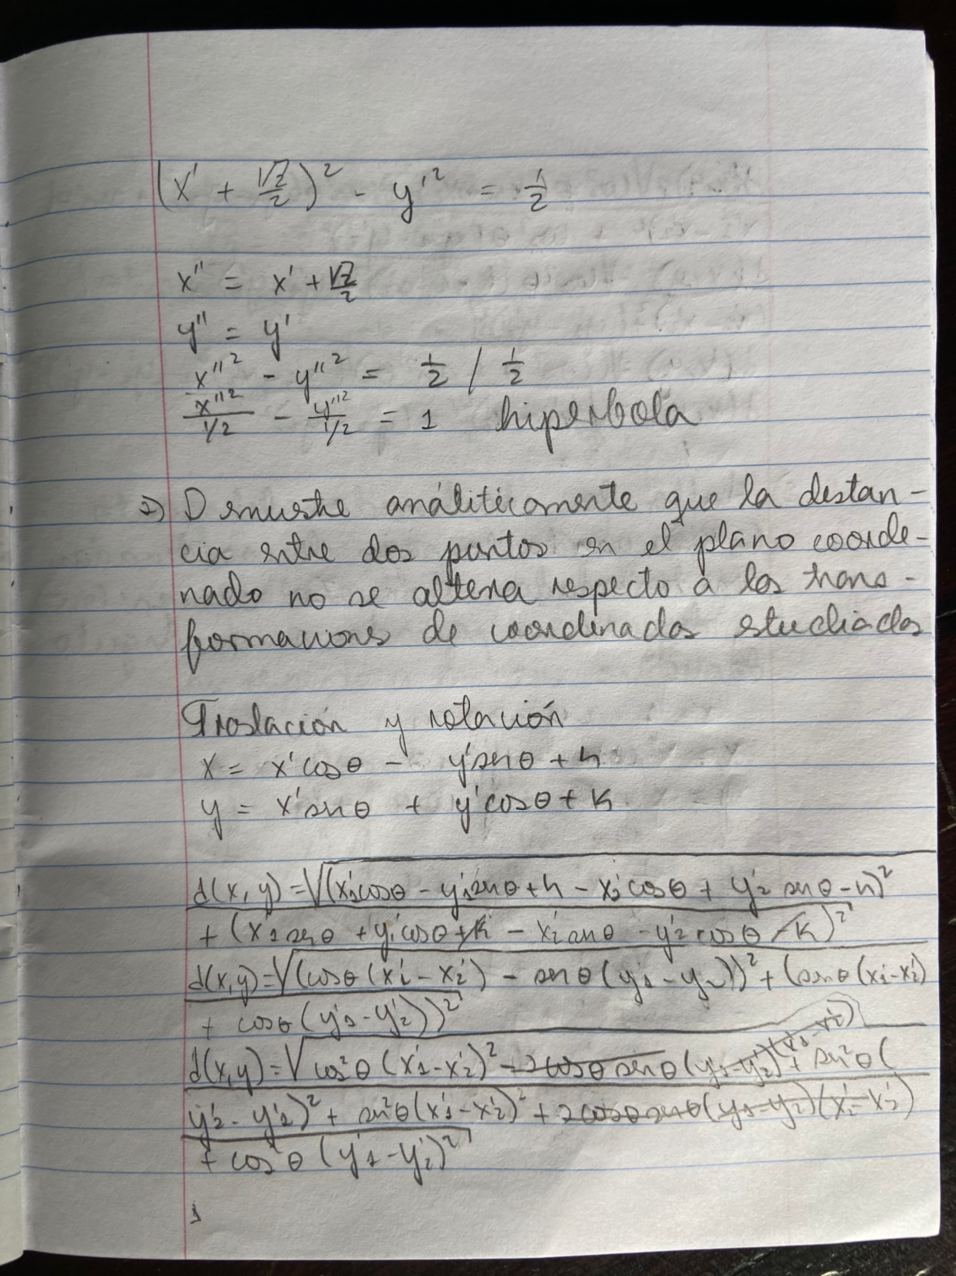 (x' + √2/2)² - y'² = 1/2
x'' = x' + √2/2
y'' = y'
x''² - y''² = 1/2 / 1/2
x''²/1/2 - y''²/1/2 = 1 hiperbola
2) Demuestre analíticamente que la distan-
cia entre dos puntos en el plano coorde-
nado no se altera respecto a las trans-
formaciones de coordenadas estudiadas
Traslación y rotación
x = x'cosθ - y'senθ + h
y = x'senθ + y'cosθ + k
d(x,y)=√(x'₁cosθ - y'₁senθ + h - x'₂cosθ + y'₂senθ - h)²
+ (x'₁senθ + y'₁cosθ + k - x'₂senθ - y'₂cosθ - k)²
d(x,y)=√(cosθ(x'₁-x'₂) - senθ(y'₁-y'₂))² + (senθ(x'₁-x'₂)
+ cosθ(y'₁-y'₂))²
d(x,y)=√cos²θ(x'₁-x'₂)² - 2cosθsenθ(y'₁-y'₂)(x'₁-x'₂) + sen²θ(
y'₂-y'₁)² + sen²θ(x'₁-x'₂)² + 2cosθsenθ(y'₁-y'₂)(x'₁-x'₂)
+ cos²θ(y'₁-y'₂)²